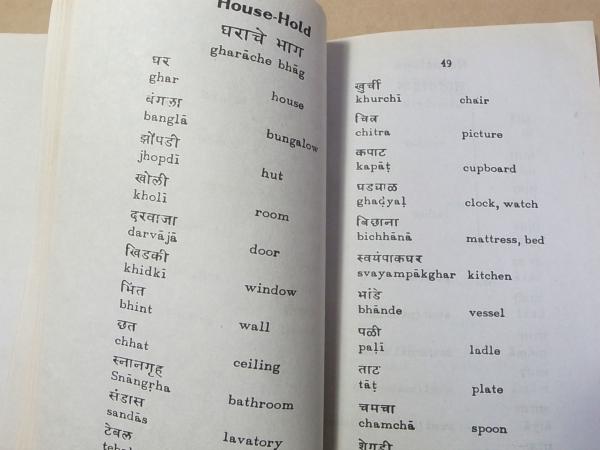 House-Hold
घराचे भाग
gharāche bhāg
घर
ghar house
बंगला
banglā bungalow
झोंपडी
jhopdī hut
खोली
kholī room
दरवाजा
darvājā door
खिडकी
khidkī window
भिंत
bhint wall
छत
chhat ceiling
स्नानगृह
Snāngṛha bathroom
संडास
sandās lavatory
टेबल
49
खुर्ची
khurchī chair
चित्र
chitra picture
कपाट
kapāṭ cupboard
घडयाळ
ghaḍyaḷ clock, watch
बिछाना
bichhānā mattress, bed
स्वयंपाकघर
svayampākghar kitchen
भांडे
bhānde vessel
पळी
paḷī ladle
ताट
tāṭ plate
चमचा
chamchā spoon
शेगडी